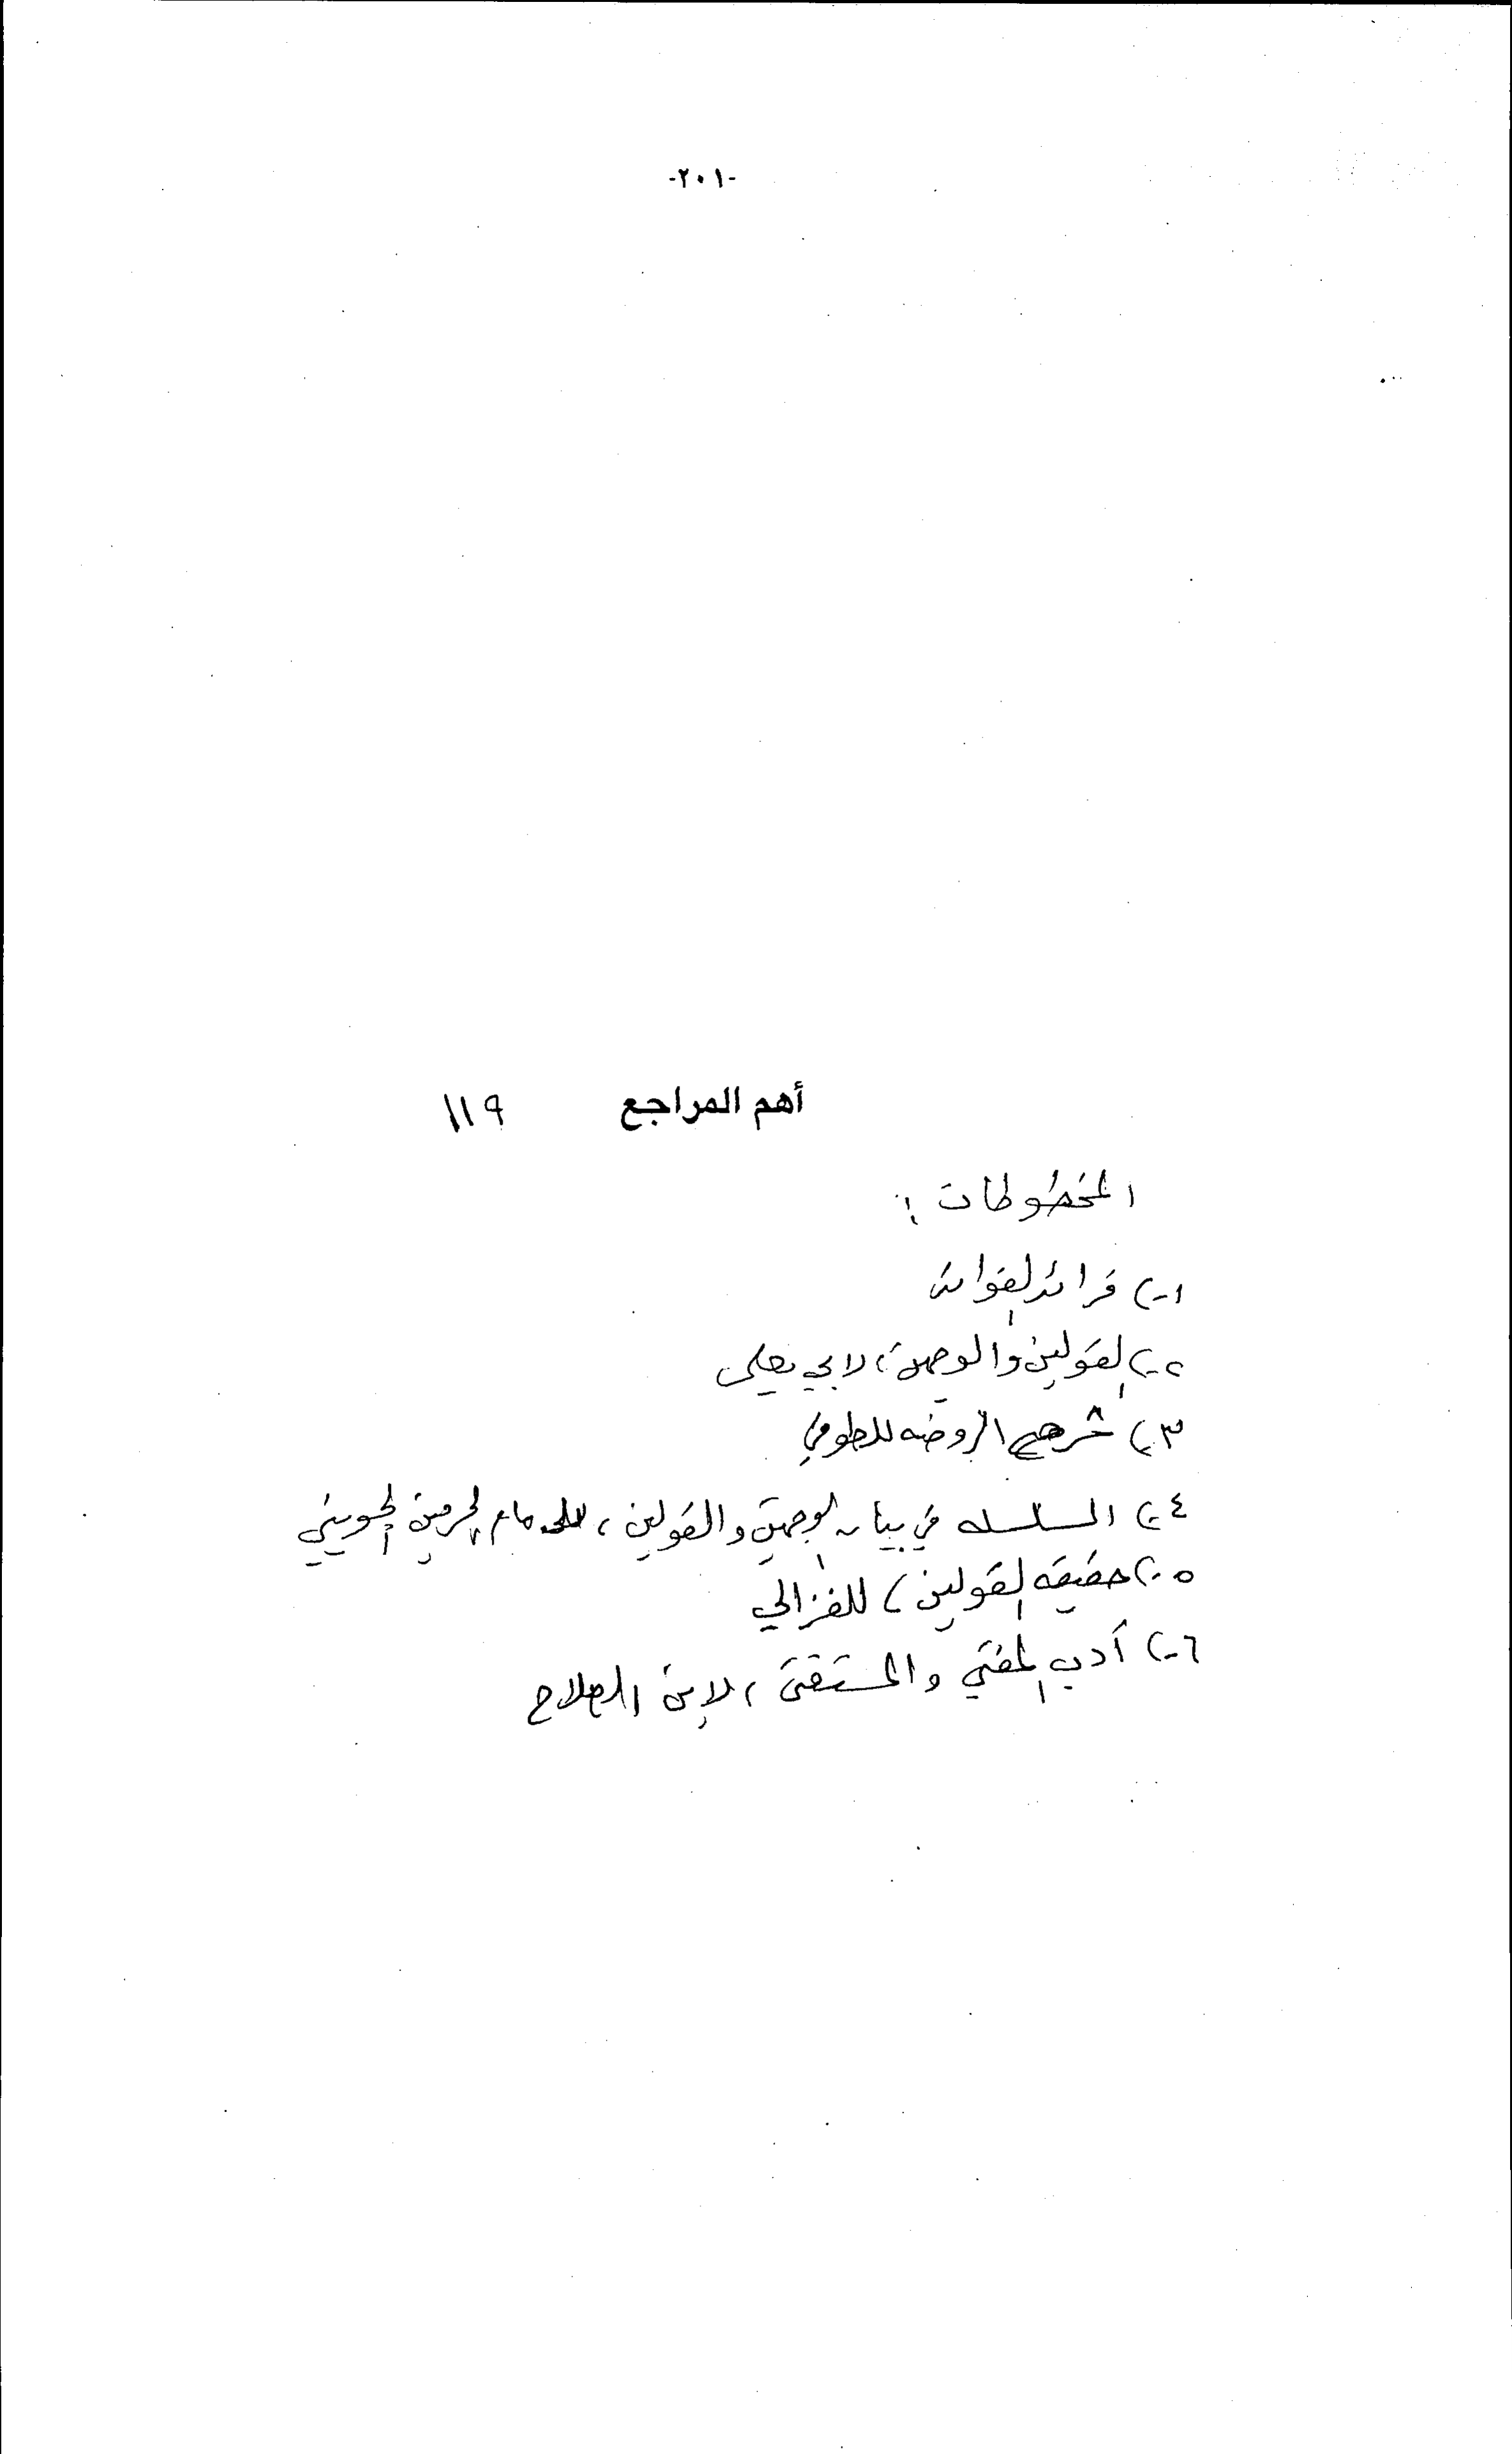 -٢٠١-
أهم المراجع ١١٩
المخطوطات :
١-) فرائد الفوائد
٢-) القولين والوجهين، لابي يعلى
٣-) شرح الروضه للطوفي
٤-) السلسله في بيان الوجهين والقولين، للامام الحرمين الجويني
٥-) حقيقه القولين، للغزالي
٦-) أدب المفتي والمستفتى، لابن الصلاح